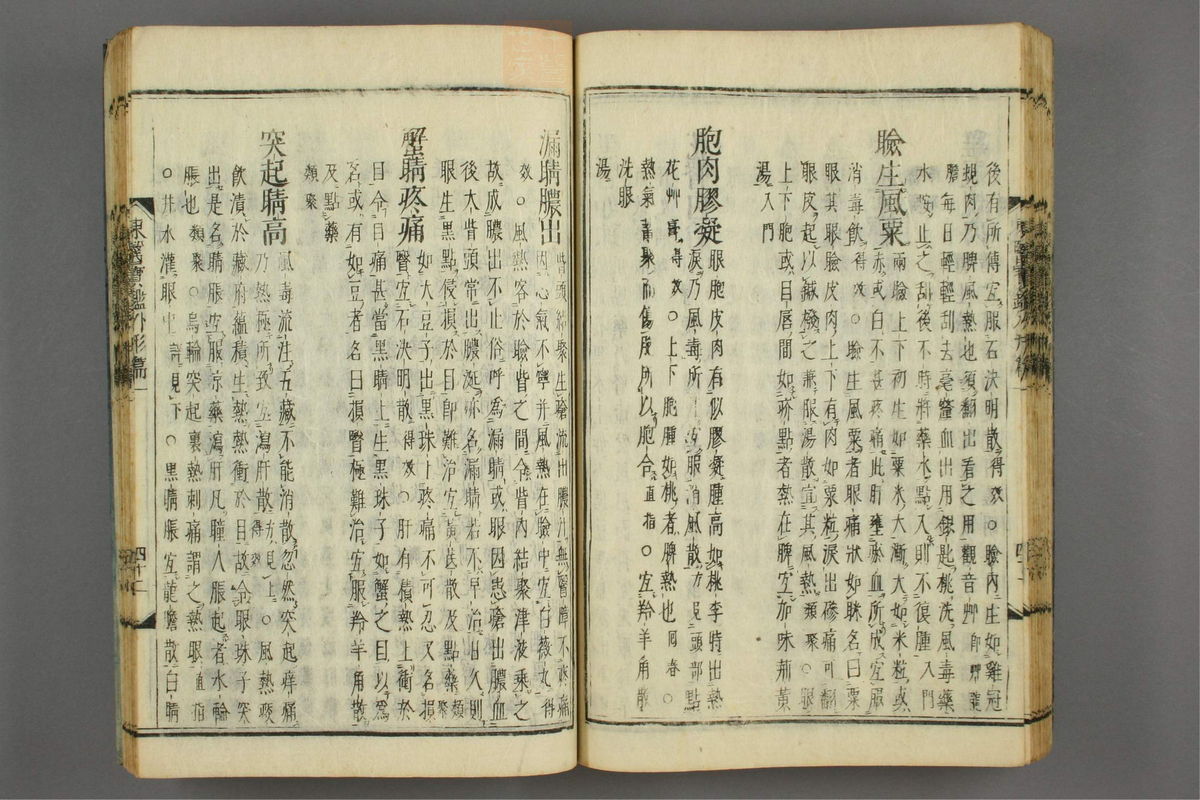 後有所傳宜服石決明散得效○瞼內生如雞冠
蜆肉乃脾風熱也須翻出看之用觀音艸卽野薤
膽每日輕輕刮去毫釐血出用銀匙桃洗風毒藥
水按止之刮後不時將藥水點入則不復腫入門
瞼生風粟兩瞼上下初生如粟米大漸大如米粒或
赤或白不甚疼痛此肝壅瘀血所成宜服
消毒飲得效○瞼生風粟者眼痛狀如眯名曰粟
眼其眼瞼皮肉上下有肉如粟粒淚出磣痛可翻
眼皮起以鍼撥之兼服湯散宣其風熱類聚○眼
上下胞或目唇間如疥點者熱在脾宜加味荊黃
湯入門
胞肉膠凝眼胞皮肉有似膠凝腫高如桃李時出熱
淚乃風毒所宜服消風散方見頭部點
花艸膏得效○上下胞腫如桃者脾熱也回春○
熱氣蓄聚而傷胞所以胞合直指○宜羚羊角散
洗眼
湯
漏睛膿出眥頭結聚生瘡流出膿汁無瞖障不疼痛
因心氣不寧并風熱在瞼中宜白薇丸得
效○風熱客於瞼眥之間令眥內結聚津液乘之
故成膿出不止俗呼爲漏睛或眼因患瘡出膿血
後大眥頭常出膿涎亦名漏睛若不早治出久則
眼生黑點侵損於目卽難治宜黃芪散及點藥類聚
蟹睛疼痛如大豆子出黑珠上疼痛不可忍又名損
瞖宜石決明散得效○肝有積熱上衝於
目令目痛甚當黑睛上生黑珠子如蟹之目以爲
名或有如豆者名曰損瞖極難治宜服羚羊角散
及點藥
類聚
突起睛高風毒流注五藏不能消散忽然突起痒痛
乃熱極所致宜瀉肝散方見上得效○風熱痰
飲漬於藏府蘊積生熱熱衝於目故令眼珠子突
出是名睛脹宜服凉藥瀉肝凡瞳人脹起者水輪
脹也類聚○烏輪突起裏熱刺痛謂之熱眼直指
○井水灌眼中詳見下○黑睛脹宜龍膽散白睛
東醫寶鑑外形篇一
四十二